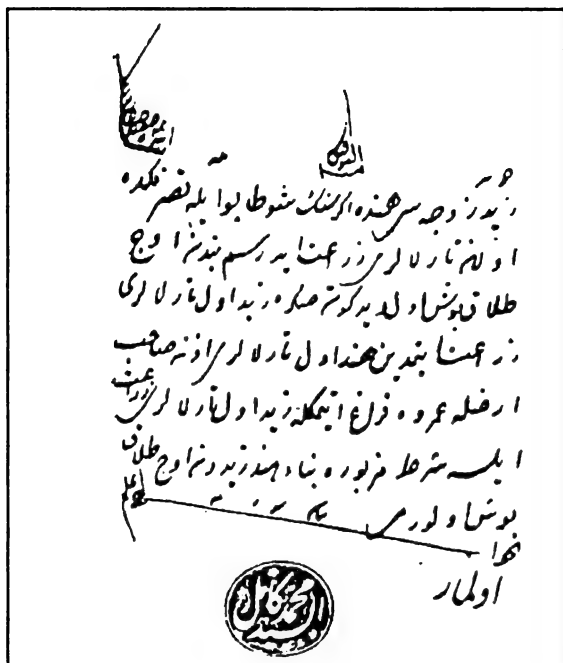 التوفيق
زید زوجه سی هنده اكر سنك شو طابو ایله تصرفكده
اولان تارلالری زراعت ایدرسم بندن اوج
طلاق بوش اول دیدكدن صكره زید اول تارلالری
زراعت ایتمدین هند اول تارلالری اذن صاحب
ارضله عمروه فراغ ایتمكله زید اول تارلالری زراعت
ایلسه شرط مزبوره بناء هند زیددن اوج طلاق
بوش اولورمی
اولماز
السید محمد كامل